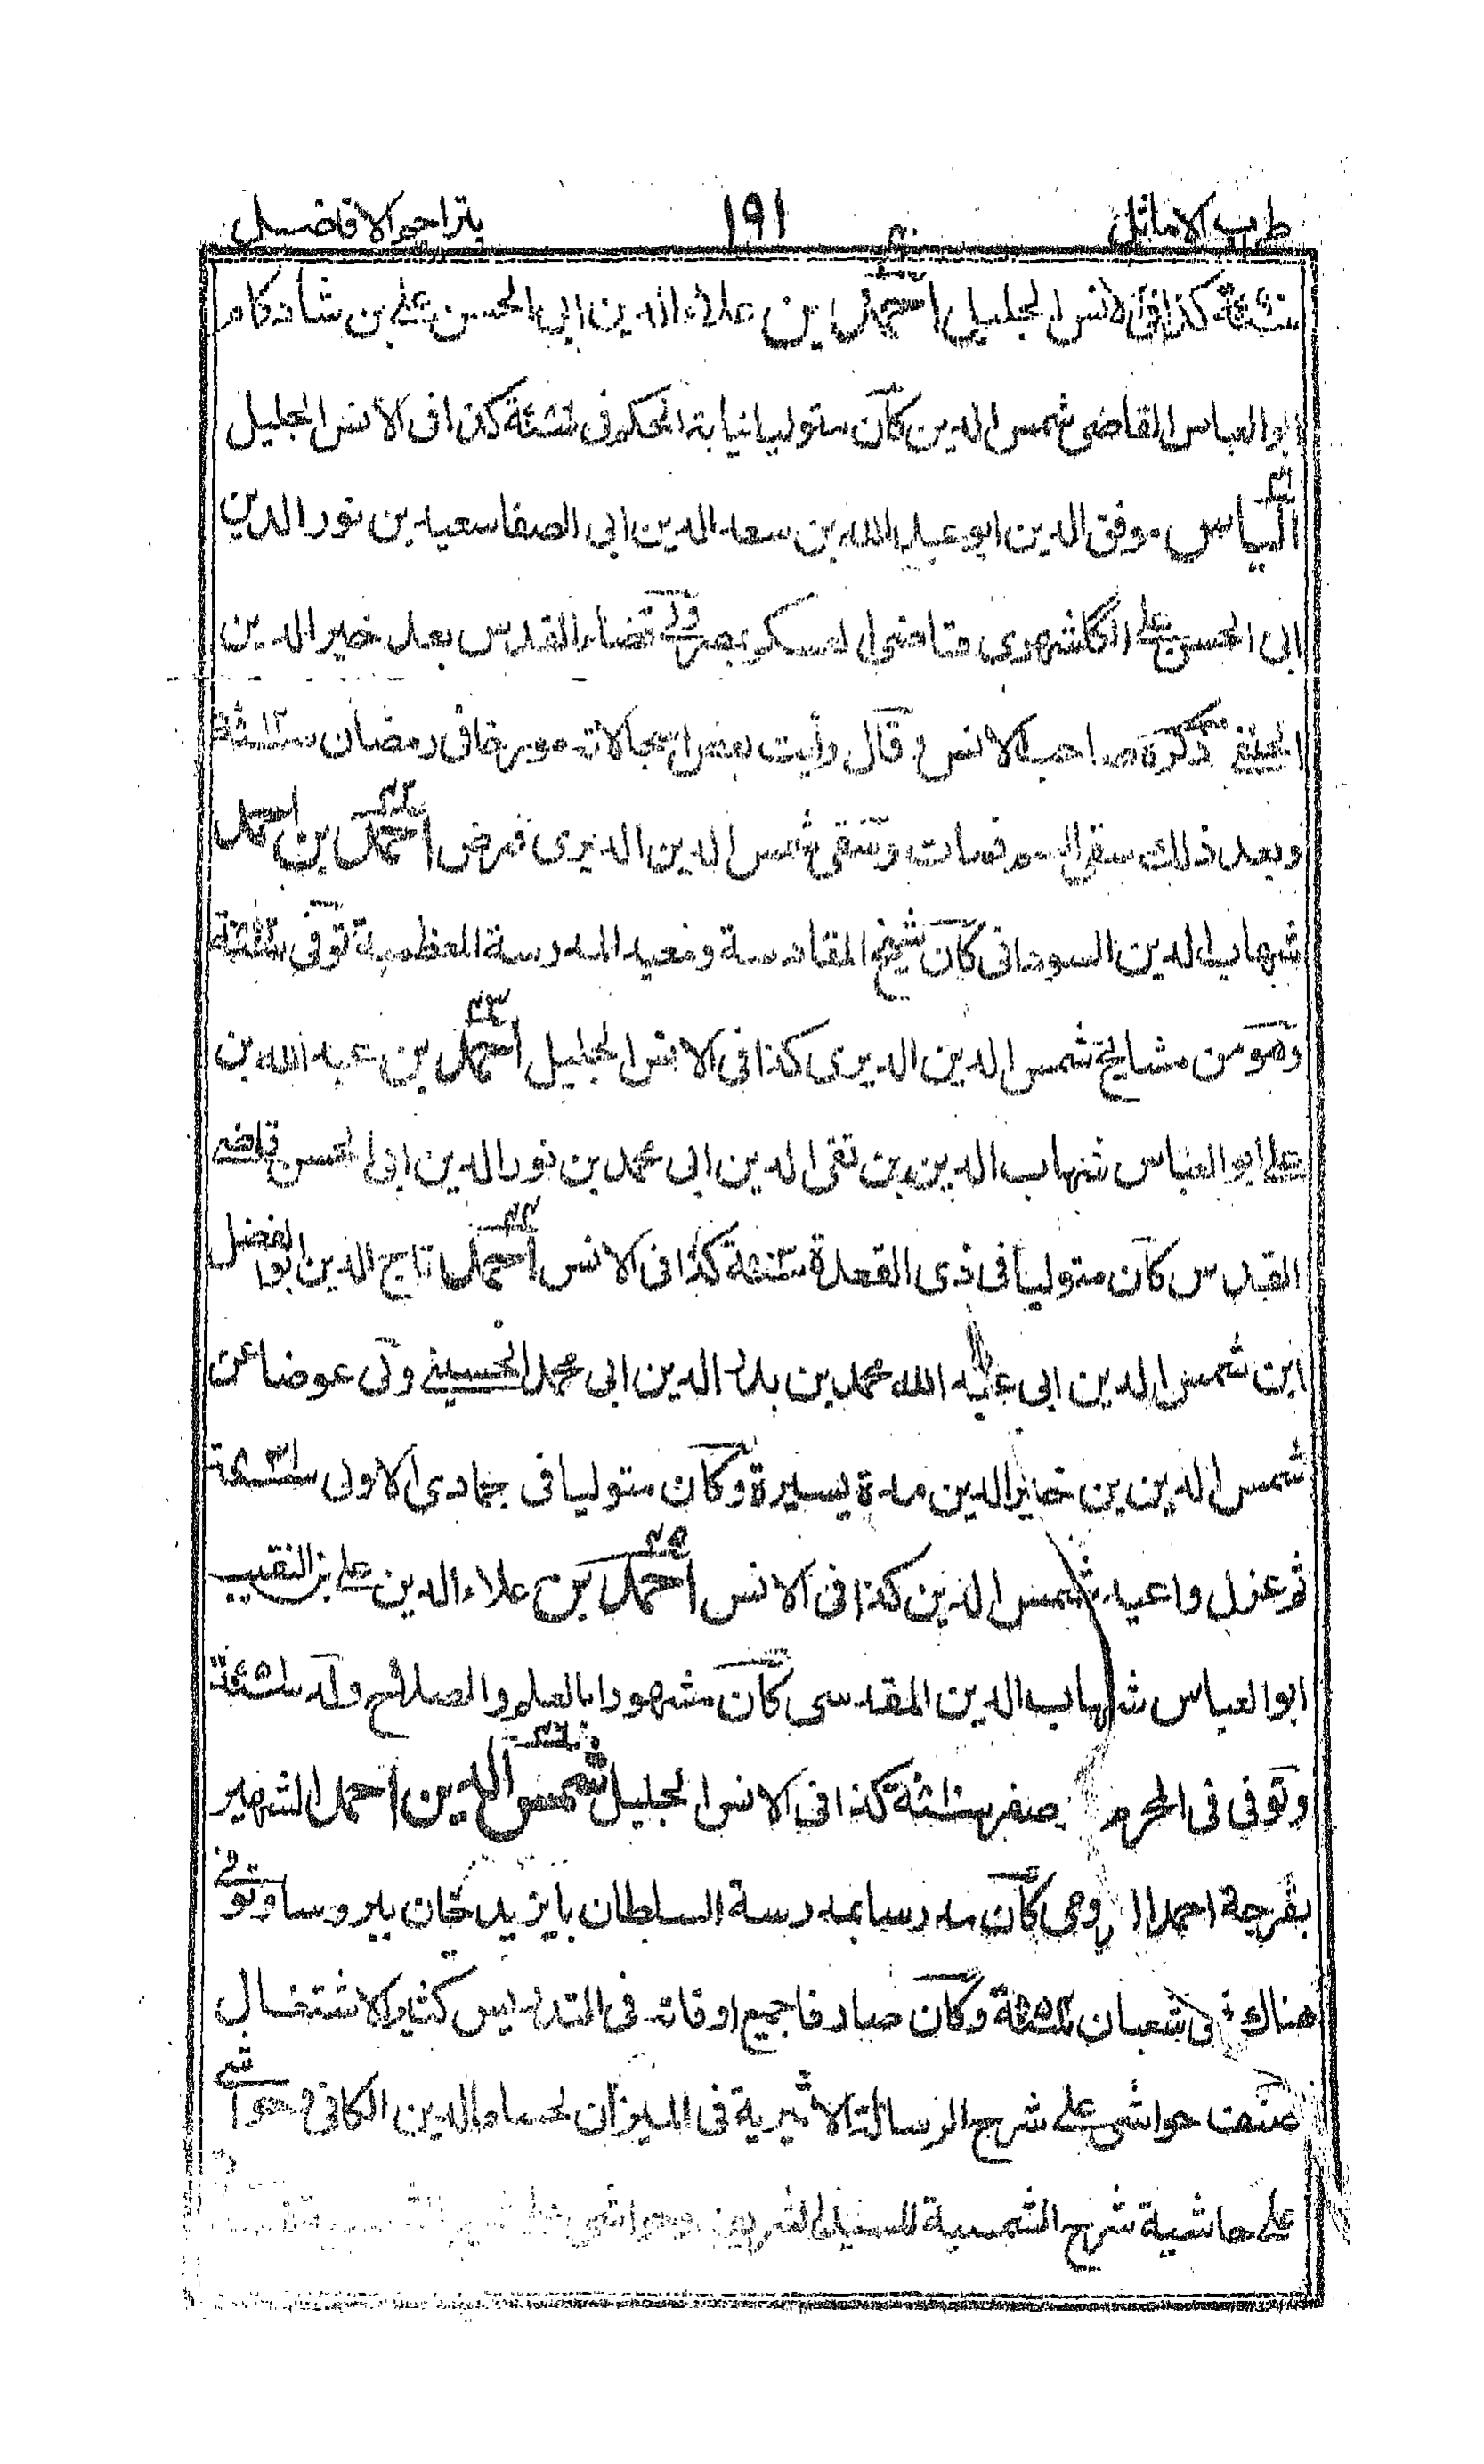 طرب الاماثل ١٩١ بتراجم الافاضل
كذا فى الانس الجليل احمد بن علاء الدين ابى الحسن على بن شادكام
ابو العباس القاضى شمس الدين كان متوليا نيابة الحكم فى كذا فى الانس الجليل
الياس موفق الدين ابو عبد الله بن سعد الدين ابى الصفا سعيد بن نور الدين
ابى الحسن على الكاشهرى قاضى العسكر بمصر ولى قضاء القدس بعد خير الدين
الحنفى ذكره صاحب الانس وقال رأيت بعض اسجالاته مورخا فى رمضان
وبعد ذلك سقى السم فمات وسقى شمس الدين الديرى فمرض احمد بن احمد
شهاب الدين السودانى كان شيخ المقادسة ومعيد المدرسة المعظمية توفى
وهو من مشايخ شمس الدين الديرى كذا فى الانس الجليل احمد بن عبد الله بن
على ابو العباس شهاب الدين بن تقى الدين ابى محمد بن نور الدين ابى الحسن قاضى
القدس كان متوليا فى ذى القعدة كذا فى الانس احمد تاج الدين ابو الفضل
ابن شمس الدين ابى عبد الله محمد بن بدر الدين ابى محمد الحسينى ولى عوضا عن
شمس الدين بن خير الدين مدة يسيرة وكان متوليا فى جمادى الاولى
ثم عزل واعيد شمس الدين كذا فى الانس احمد بن علاء الدين على بن النقيب
ابو العباس شهاب الدين المقدسى كان مشهورا بالعلم والصلاح ولد
وتوفى فى المحرم صفر كذا فى الانس الجليل شمس الدين احمد الشهير
بقرجة احمد الرومى كان مدرسا بمدرسة السلطان بايزيد خان ببروسا وتوفى
هناك فى شعبان وكان صارفا جميع اوقاته فى التدريس كثير الاشتغال
صنف حواشى على شرح الرسالة الاثيرية فى الميزان لحسام الدين الكافى وحواشى
على حاشية شرح الشمسية للسيد الشريف وحواشى